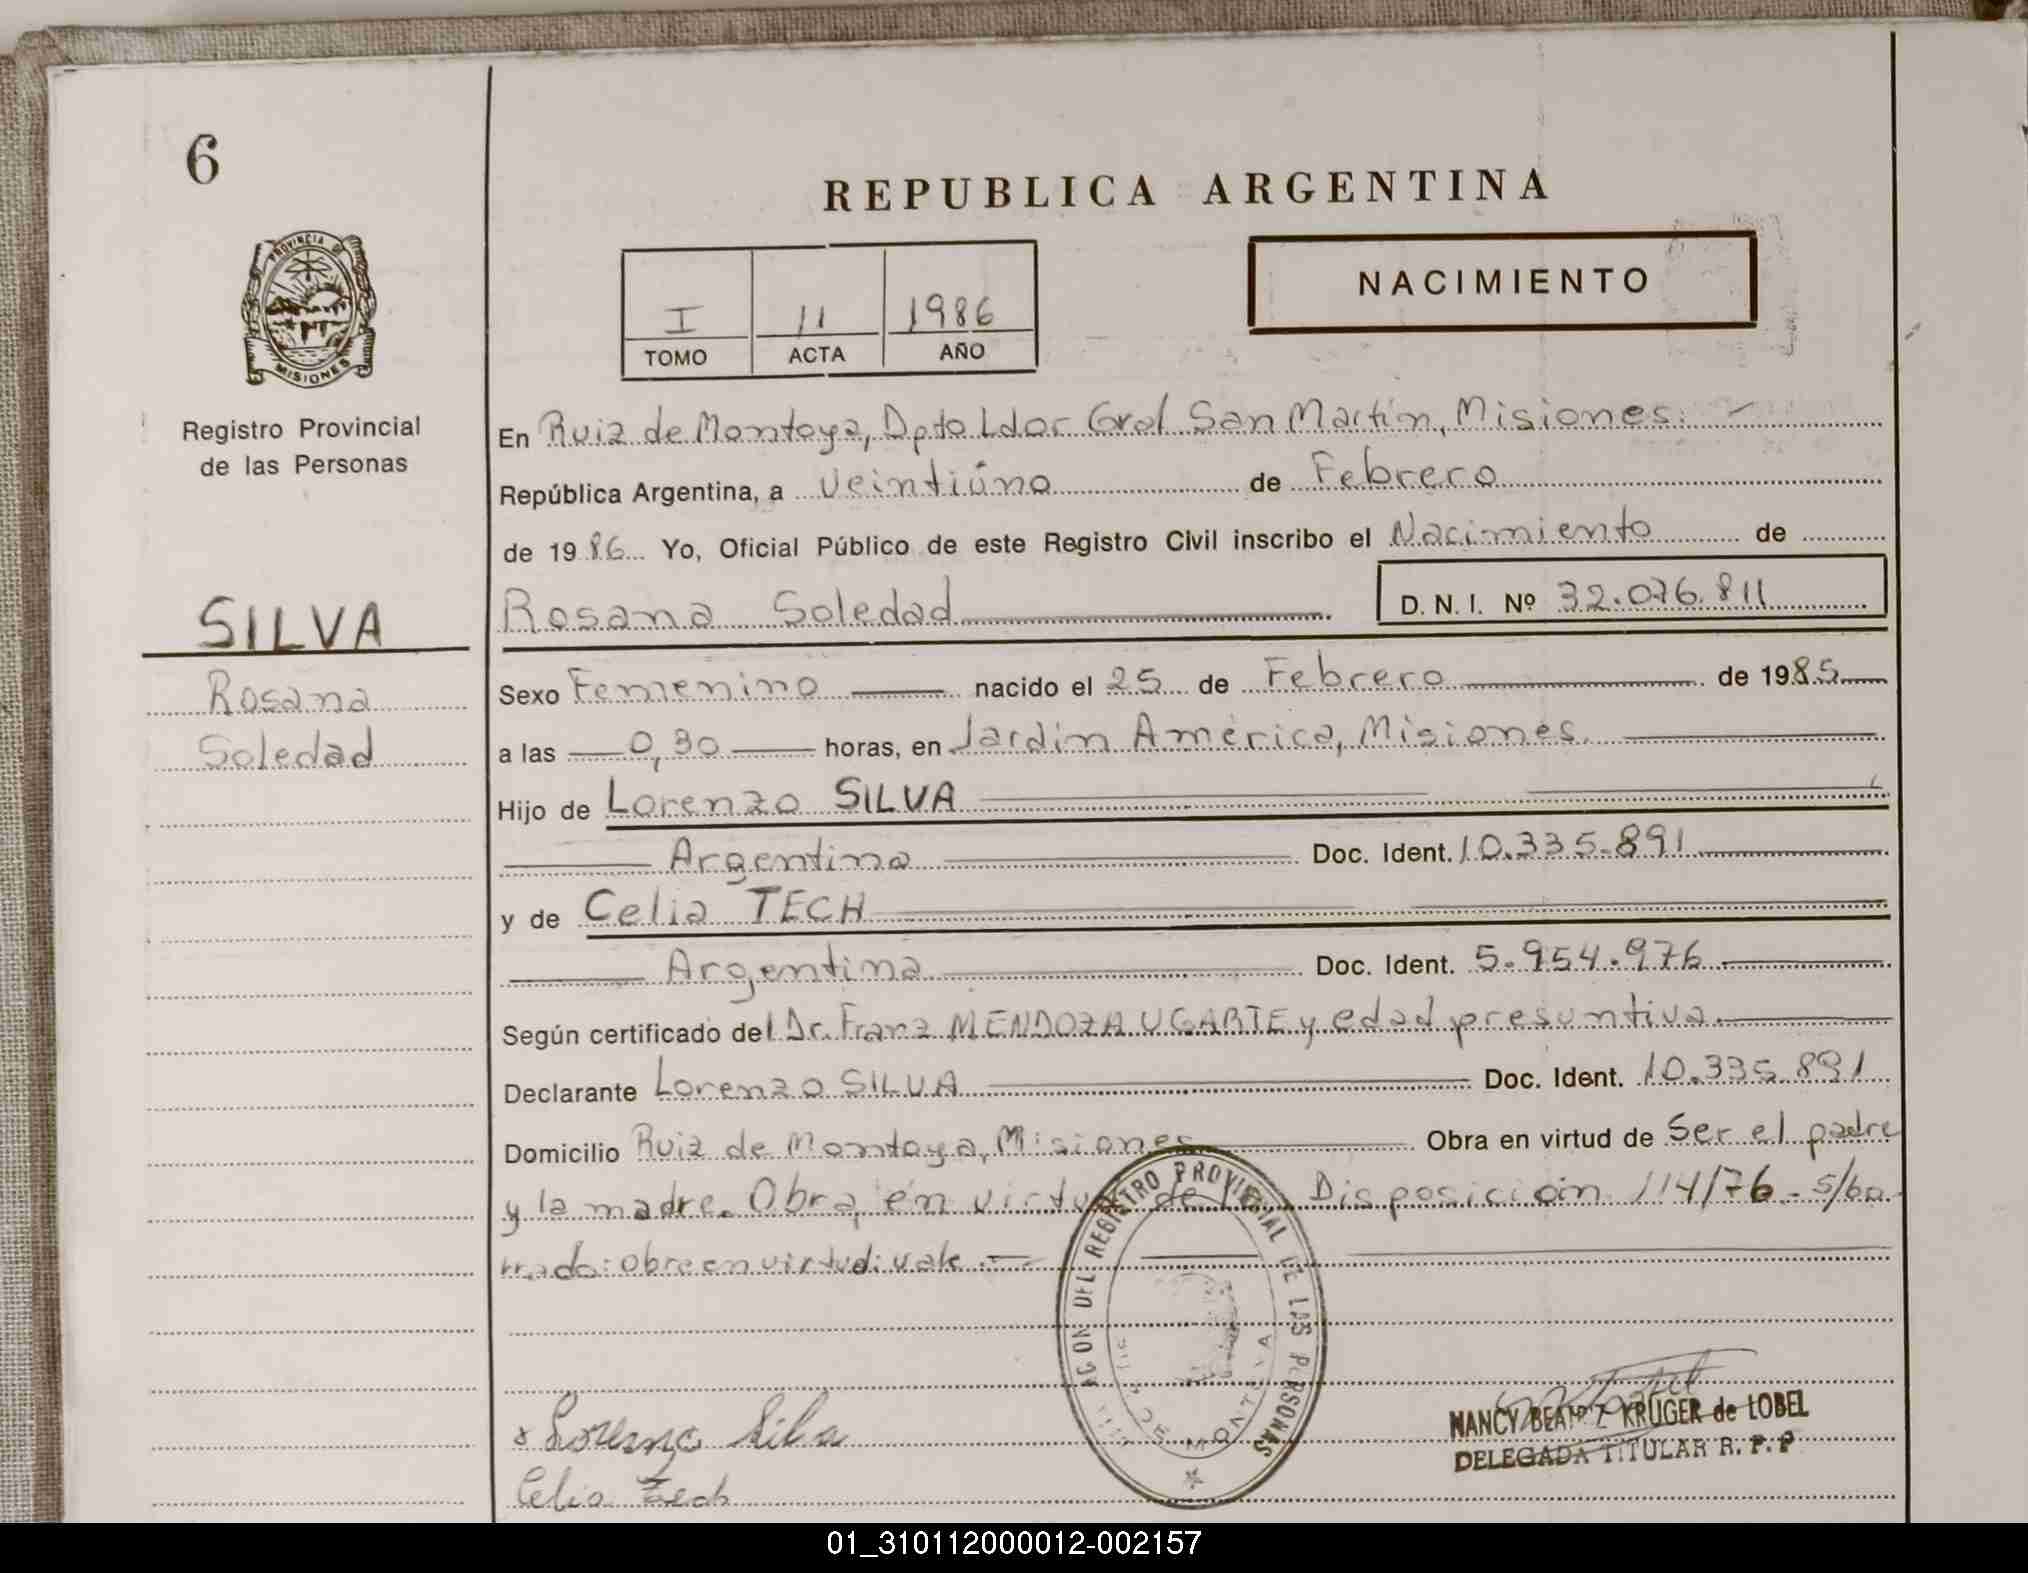 6
REPUBLICA ARGENTINA
PROVINCIA DE
MISIONES
I 11 1986
TOMO ACTA AÑO
NACIMIENTO
Registro Provincial
de las Personas
En Ruiz de Montoya, Dpto Ldor Gral San Martín, Misiones.
República Argentina, a veintiúno de Febrero
de 1986 Yo, Oficial Público de este Registro Civil inscribo el Nacimiento de
SILVA
Rosana
Soledad
Rosana Soledad D. N. I. Nº 32.076.811
Sexo Femenino nacido el 25 de Febrero de 1985
a las 0,30 horas, en Jardín América, Misiones.
Hijo de Lorenzo SILVA
Argentino Doc. Ident. 10.335.891
y de Celia TECH
Argentina Doc. Ident. 5.954.976
Según certificado del Dr. Franz MENDOZA UGARTE y edad presuntiva.
Declarante Lorenzo SILVA Doc. Ident. 10.335.891
Domicilio Ruiz de Montoya, Misiones Obra en virtud de Ser el padre
y la madre. Obra en virtud de la Disposición 114/76 - s/bo
rrado: obra en virtud: vale
DEL REGISTRO PROVINCIAL DE LAS PERSONAS
DE MONTOYA
x Lorenzo Silva
Celia Tech
NANCY BEATRIZ KRUGER de LOBEL
DELEGADA TITULAR R. P. P
01_310112000012-002157